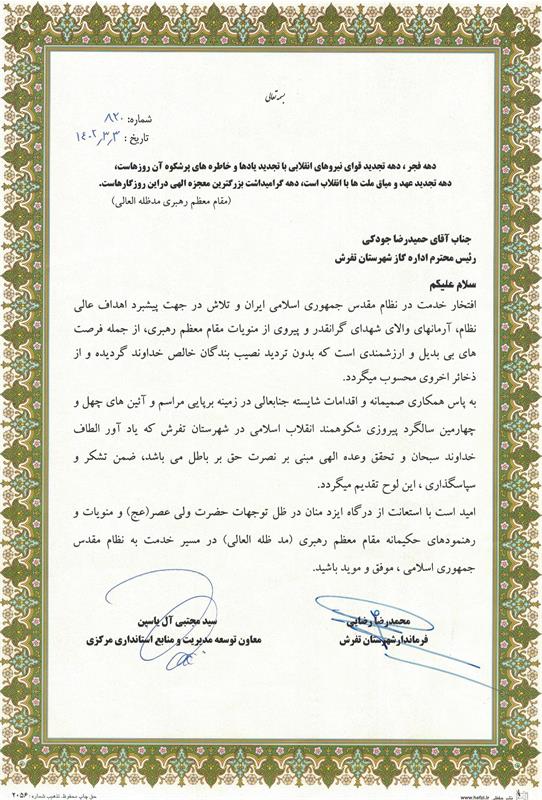 بسمه تعالی
شماره: ۸۲۰
تاریخ: ۱۴۰۲٫۳٫۳
دهه فجر، دهه تجدید قوای نیروهای انقلابی با تجدید یادها و خاطره های پرشکوه آن روزهاست،
دهه تجدید عهد و میاق ملت ها با انقلاب است، دهه گرامیداشت بزرگترین معجزه الهی دراین روزگارهاست.
(مقام معظم رهبری مدظله العالی)
جناب آقای حمیدرضا جودکی
رئیس محترم اداره گاز شهرستان تفرش
سلام علیکم
افتخار خدمت در نظام مقدس جمهوری اسلامی ایران و تلاش در جهت پیشبرد اهداف عالی
نظام، آرمانهای والای شهدای گرانقدر و پیروی از منویات مقام معظم رهبری، از جمله فرصت
های بی بدیل و ارزشمندی است که بدون تردید نصیب بندگان خالص خداوند گردیده و از
ذخائر اخروی محسوب میگردد.
به پاس همکاری صمیمانه و اقدامات شایسته جنابعالی در زمینه برپایی مراسم و آئین های چهل و
چهارمین سالگرد پیروزی شکوهمند انقلاب اسلامی در شهرستان تفرش که یاد آور الطاف
خداوند سبحان و تحقق وعده الهی مبنی بر نصرت حق بر باطل می باشد، ضمن تشکر و
سپاسگذاری ، این لوح تقدیم میگردد.
امید است با استعانت از درگاه ایزد منان در ظل توجهات حضرت ولی عصر(عج) و منویات و
رهنمودهای حکیمانه مقام معظم رهبری (مد ظله العالی) در مسیر خدمت به نظام مقدس
جمهوری اسلامی ، موفق و موید باشید.
محمدرضا رضایی
فرماندارشهرستان تفرش
سید مجتبی آل یاسین
معاون توسعه مدیریت و منابع استانداری مرکزی
www.hafzi.ir
حق چاپ محفوظ. تذهیب شماره: ۲۰۵۶